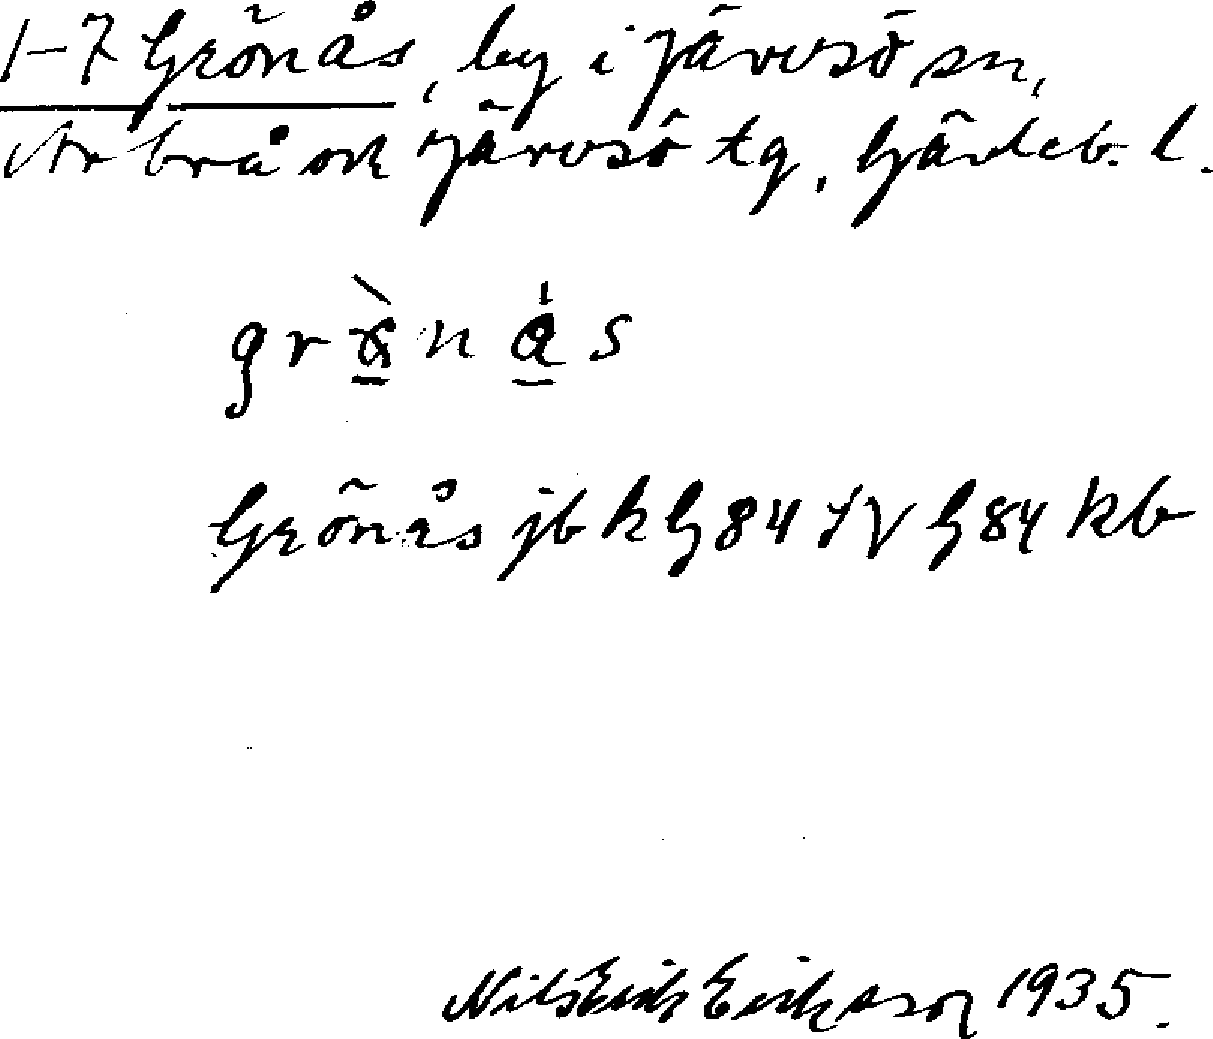 1-7 Grönås, by i Järvsö sn,
Arbrå och Järvsö tg, Gävleb. l.
grö̀nås
Grönås jb k G 84 kb
Nils Erik Erikson 1935.